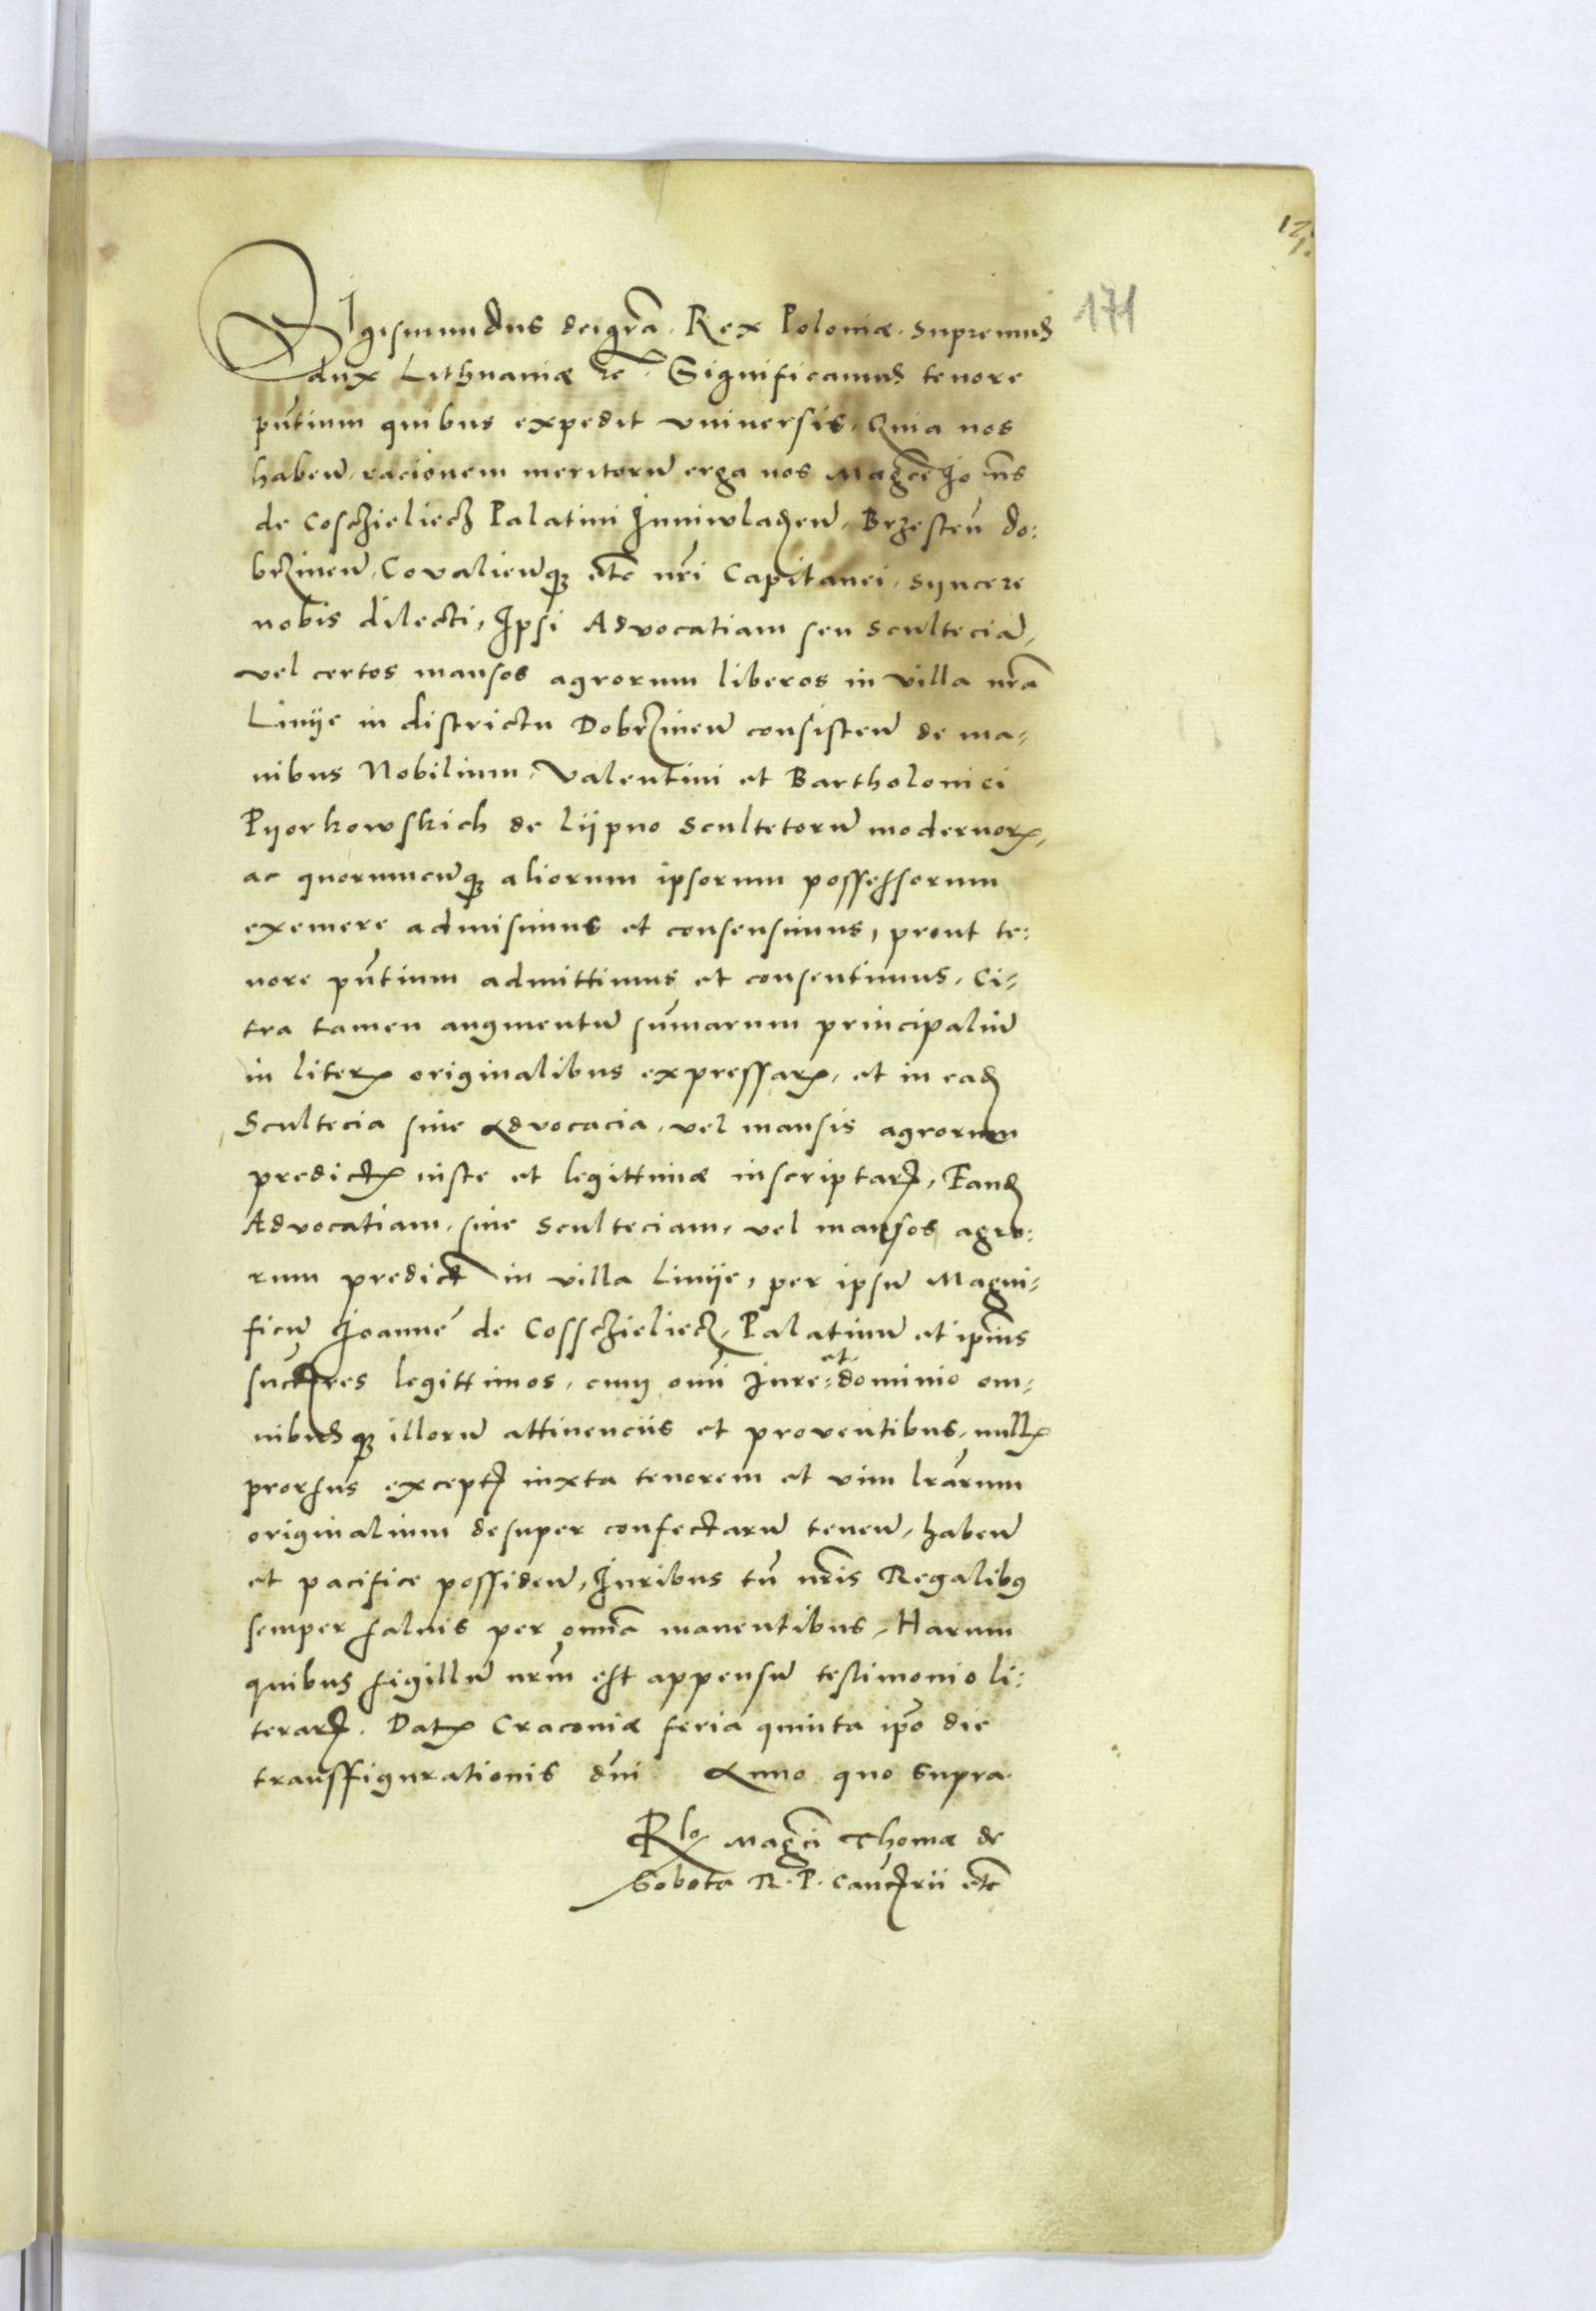 171
171.
Sigismundus dei grã. Rex Poloniæ. Supremus
dux Lithuaniæ etc. Significamus tenore
pñtium quibus expedit vniuersis, Quia nos
habeñ. racionem meritorũ erga nos Magcẽ Joãnis
de Cosczieliecz Palatini Juniwladzeñ, Brzesteñ do:
brzineñ, Covalieñqȝ etc nrĩ Capitanei, syncere
nobis dilecti, Ipsi Advocatiam seu Sculteciã,
vel certos mansos agrorum liberos in villa nrã
Liniÿe in districtu Dobrzineñ consisteñ de ma=
nibus Nobilium, Valentini et Bartholomei
Pyorkowskich de Lÿpno Scultetorũ modernorꝝ,
ac quorumcũqȝ aliorum ipsorum possessorum
exemere admisimus et consensimus, prout te:
nore pñtium admittimus et consentimus, Ci=
tra tamen augmentũ sũmarum principaliũ
in literꝭ originalibus expressarꝝ, et in eadẽ
Scultecia siue Advocacia, vel mansis agrorum
predictꝭ iuste et legittimæ inscriptarꝝ, Eandẽ
Advocatiam, siue Sculteciam, vel mansos agro:
rum predict in villa Liniÿe, per ipsũ Magni=
ficũ Joannẽ de Cossczieliecz, Palatinũ et ipĩus
succrẽs legittimos, cum omĩ Jure= et dominio om=
nibusqȝ illorũ attinenciis et proventibus, nullꝭ
prorsus exceptꝭ iuxta tenorem et vim lrãrum
originalium desuper confectarũ teneñ, habeñ
et pacifice possideñ, Juribus tñ nrĩs Regalibus
semper saluis per omnĩa manentibus, Harum
quibus sigillũ nrm̃ est appensũ testimonio li:
terarꝝ. Datꝭ Cracoviæ feria quinta ip̃o die
transffigurationis dñi Anno quo supra.
Rlo Magcĩ Thomæ de
Sobota R. P. Cancrĩi etc